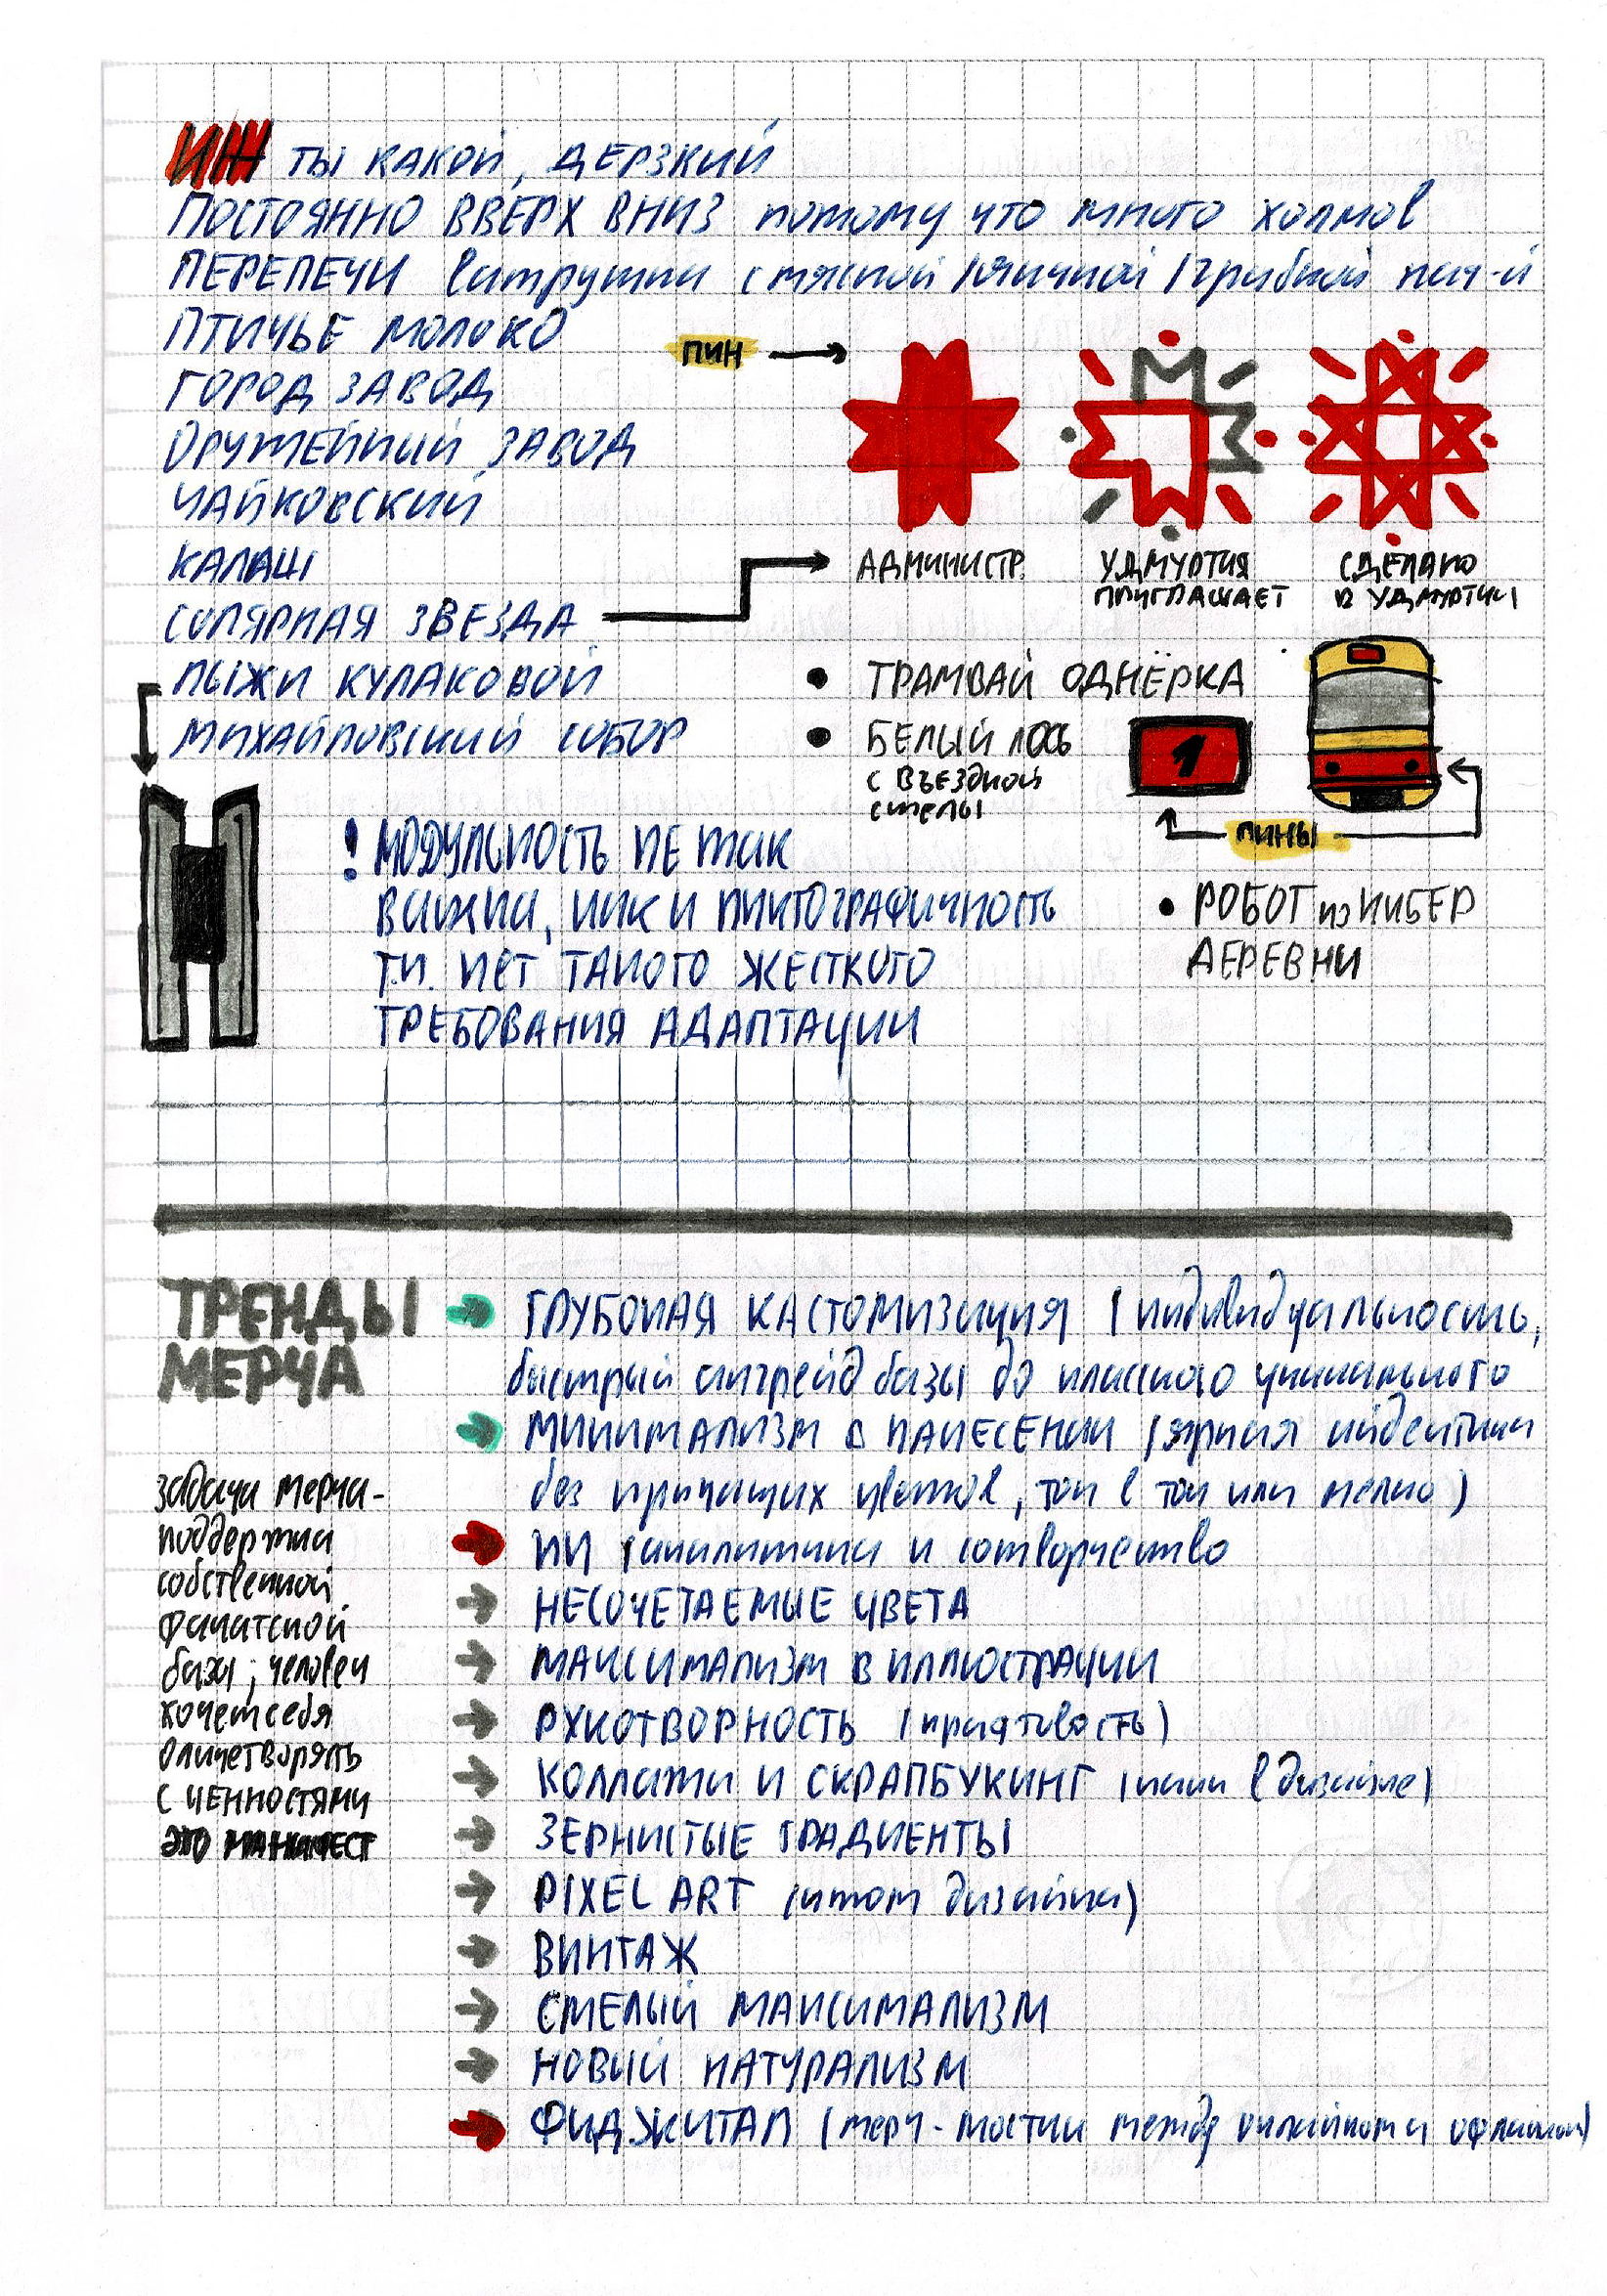 ИЖ ТЫ КАКОЙ, ДЕРЗКИЙ
ПОСТОЯННО ВВЕРХ ВНИЗ потому что много холмов
ПЕРЕПЕЧИ ватрушки с мясной / яичной / грибной нач-й
ПТИЧЬЕ МОЛОКО
ПИН
ГОРОД ЗАВОД
ОРУЖЕЙНЫЙ ЗАВОД
ЧАЙКОВСКИЙ
КАЛАШ
СОЛЯРНАЯ ЗВЕЗДА
ЛЫЖИ КУЛАКОВОЙ
МИХАЙЛОВСКИЙ СОБОР
АДМИНИСТР.
УДМУРТИЯ
ПРИГЛАШАЕТ
СДЕЛАНО
В УДМУРТИИ
• ТРАМВАЙ ОДНЁРКА
• БЕЛЫЙ ЛОСЬ
С ВЪЕЗДНОЙ
СТЕЛЫ
1
ПИНЫ
• РОБОТ ИЗ КИБЕР
ДЕРЕВНИ
! МОДУЛЬНОСТЬ НЕ ТАК
ВАЖНА, КАК И ПИКТОГРАФИЧНОСТЬ
Т.К. НЕТ ТАКОГО ЖЕСТКОГО
ТРЕБОВАНИЯ АДАПТАЦИИ
ТРЕНДЫ
МЕРЧА
ГЛУБОКАЯ КАСТОМИЗАЦИЯ (индивидуальность,
быстрый апгрейд базы до классного уникального
МИНИМАЛИЗМ В НАНЕСЕНИИ (яркая айдентика
без кричащих цветов, тон в тон или мелко)
ИИ (аналитика и сотворчество
НЕСОЧЕТАЕМЫЕ ЦВЕТА
МАКСИМАЛИЗМ В ИЛЛЮСТРАЦИИ
РУКОТВОРНОСТЬ (крафтовость)
КОЛЛАЖИ И СКРАПБУКИНГ (как в дизайне)
ЗЕРНИСТЫЕ ГРАДИЕНТЫ
PIXEL ART (атом дизайна)
ВИНТАЖ
СМЕЛЫЙ МАКСИМАЛИЗМ
НОВЫЙ НАТУРАЛИЗМ
ФИДЖИТАЛ (мерч-мостик между онлайном и офлайном)
задача мерча -
поддержка
собственной
фанатской
базы, человек
хочет себя
олицетворять
с ценностями
ЭТО МАНИФЕСТ